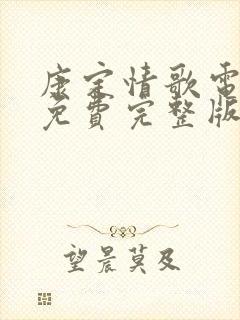 康定情歌電
免費完整版
望晨莫及